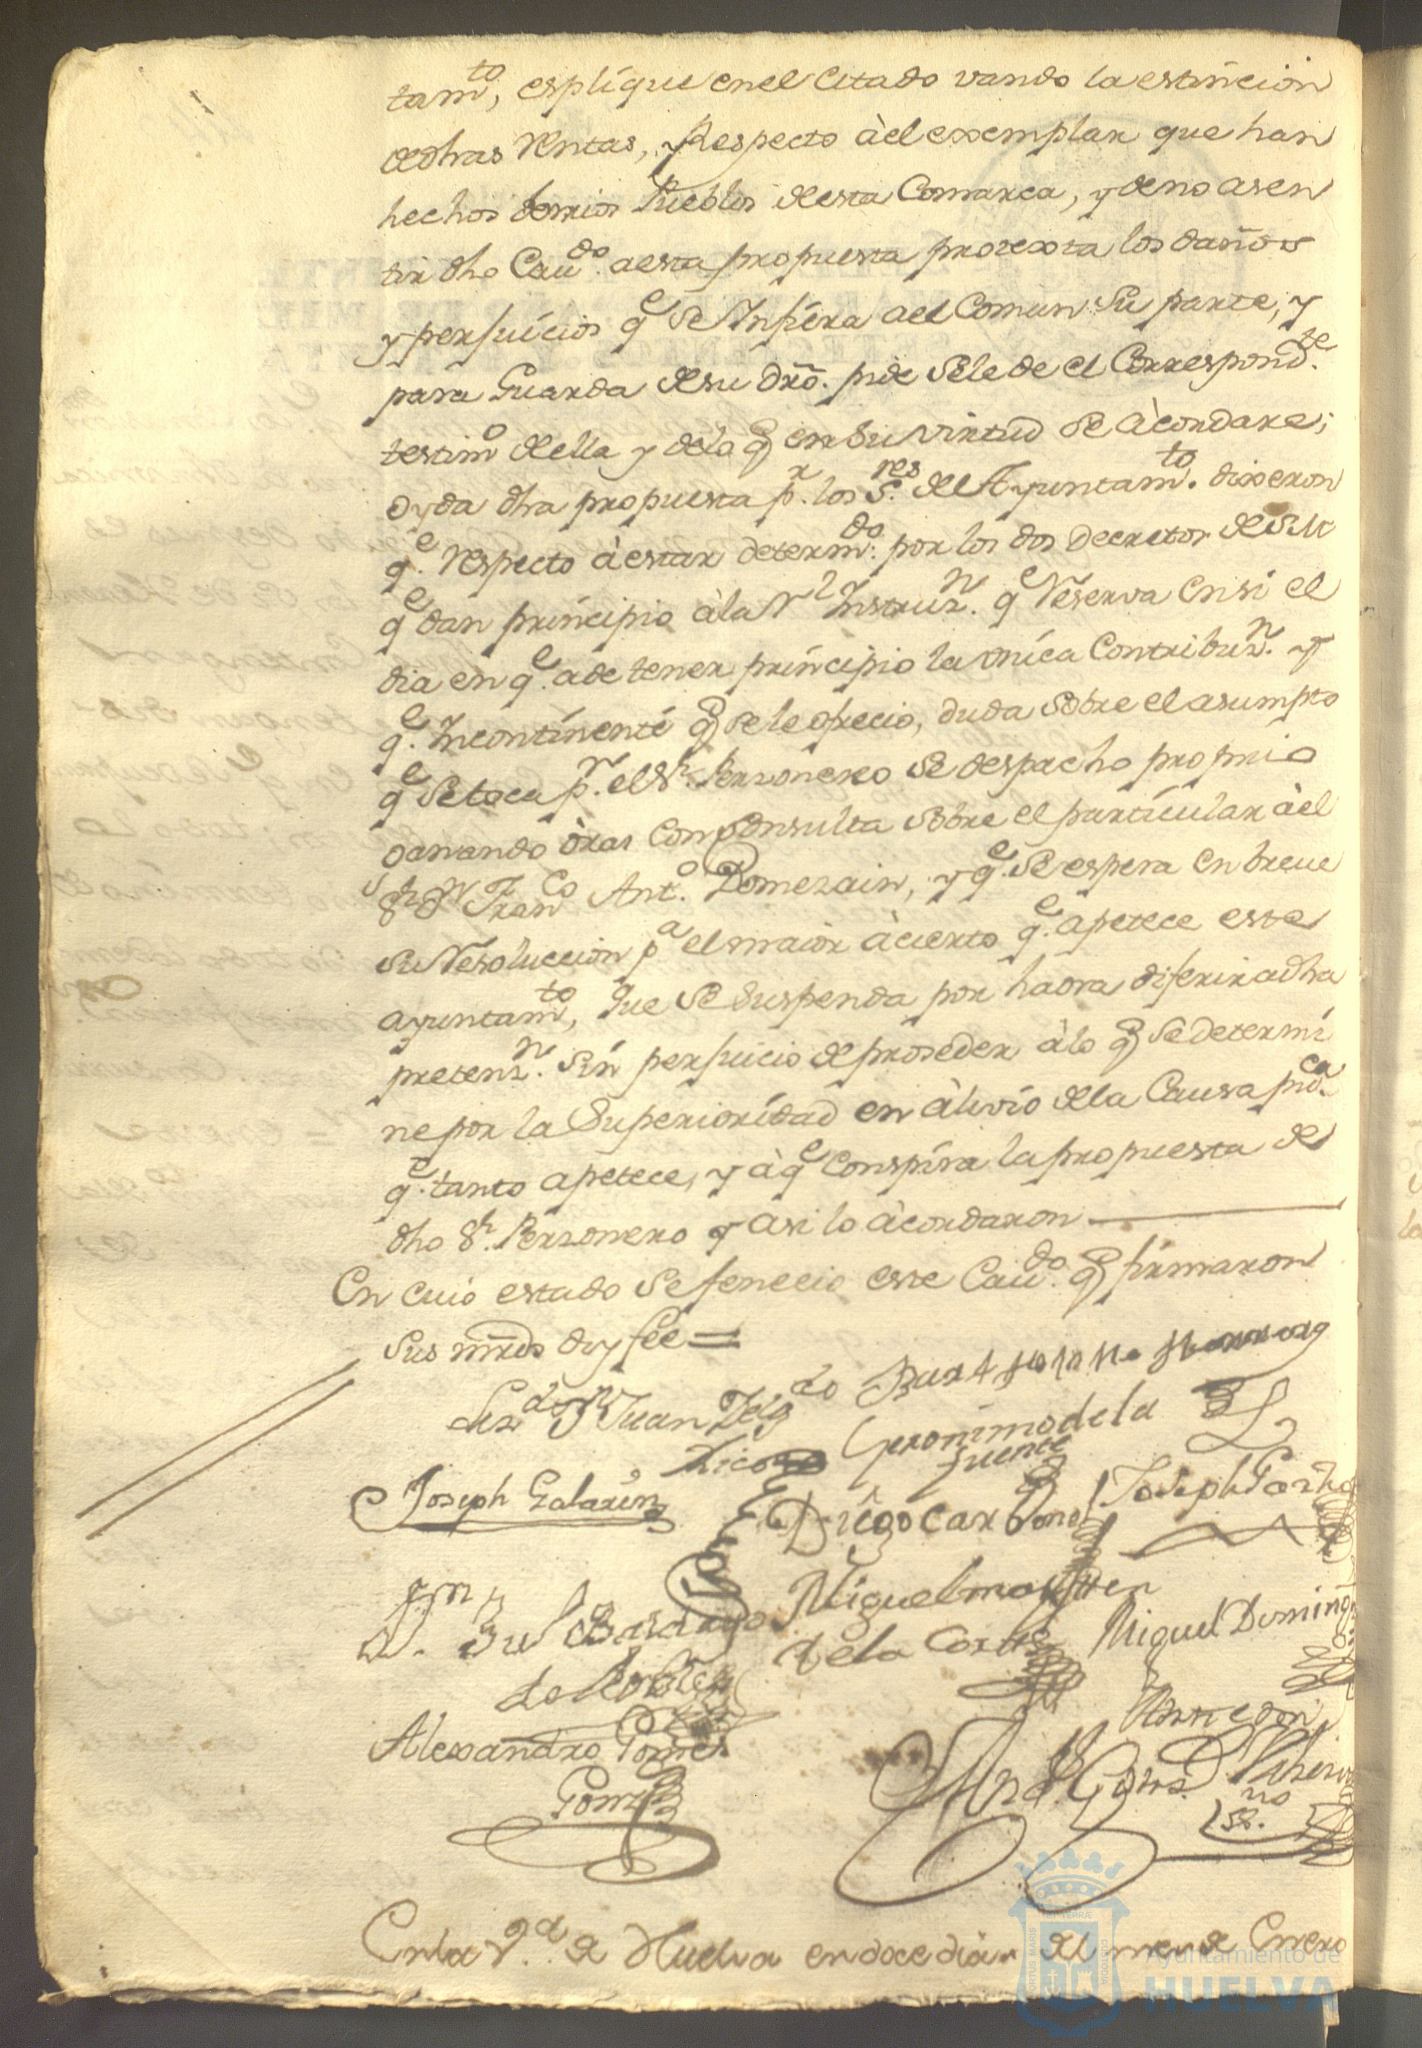 tam.to, esplique en el Citado vando la estincion
de dhas Rentas, y Respecto à el exemplar que han
hechos barrios Pueblos de esta Comarca, y de no asen
tir dho Cau.do a esta propuesta protexta los daños
y perjuicios q.e Se Infiera a el Comun Su parte, y
para Guarda de su dro. pide Se le de el Correspond.te
testim.o de ella y de lo q en Su virtud Se àcordare;
Oyda dha propuesta p.r los S.res del Ayuntam.to dixeron
q.e respecto à estar determ.do por los dos Decretos de S M
q.e dan principio à la R.l Instruz.n q.e Reserva en si el
dia en q.e a de tener principio la Vnica Contribuz.n y
q.e Incontinenti q Se le ofrecio, duda Sobre el asumpto
q.e Se toca p.r el S.r Perzonero Se despacho proprio
ganando òras Con Consulta Sobre el particular à el
S.r D.n Fran.co Ant.o Domezain, y q.e Se espera en breve
Su Resoluccion p.a el maior àcierto q.e apetece este
ayuntam.to, Que Se Suspenda por haora diferir a dha
pretenz.n Sin perjuicio de proseder à lo q Se determi
ne por la Superioridad en àlivio de la Causa pu.ca
q.e tanto apetece, y à q.e Conspira la propuesta de
dho S.r Perzonero y asi lo àcordaron
En cuio estado Se fenecio este Cau.do q firmaron
Sus mrds doy fee =
Liz.do D.n Juan Delg.do
Geronimo de la
fuente
Joseph Galarin
Diego Carbonel
Joseph Garzia
Miguel Martten
de la Corte
Miguel Doming
de Robles
Alexandro Gomez
Gonz.z
En la V.a de Huelva en doce dias del mes de Enero
Ayuntamiento de
HUELVA